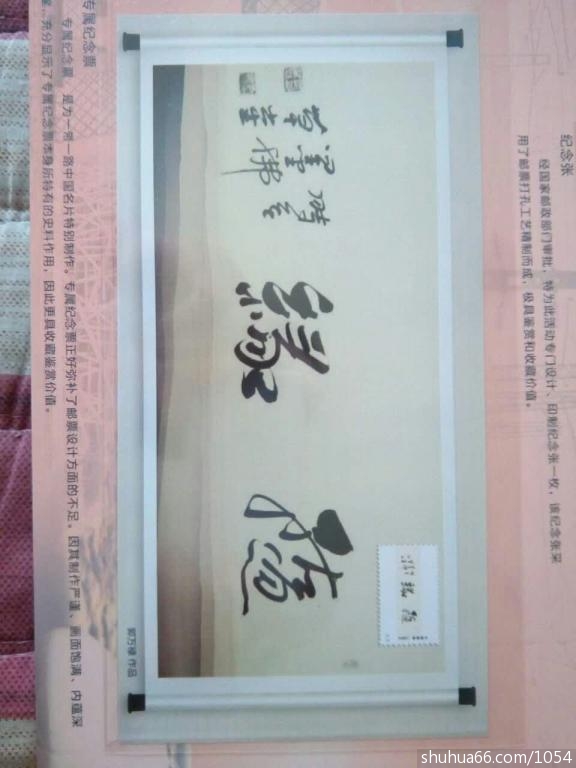 纪念张
经国家邮政部门审批，特为此活动专门设计、印制纪念张一枚，该纪念张采
用了邮票打孔工艺精制而成，极具鉴赏和收藏价值。
随緣
郭万禄 作品
专属纪念票
专属纪念票，是为一带一路中国名片特别制作。专属纪念票正好弥补了邮票设计方面的不足。因其制作严谨、画面饱满、内蕴深
厚，充分显示了专属纪念票本身所特有的史料作用，因此更具收藏鉴赏价值。
shuhua66.com/1054